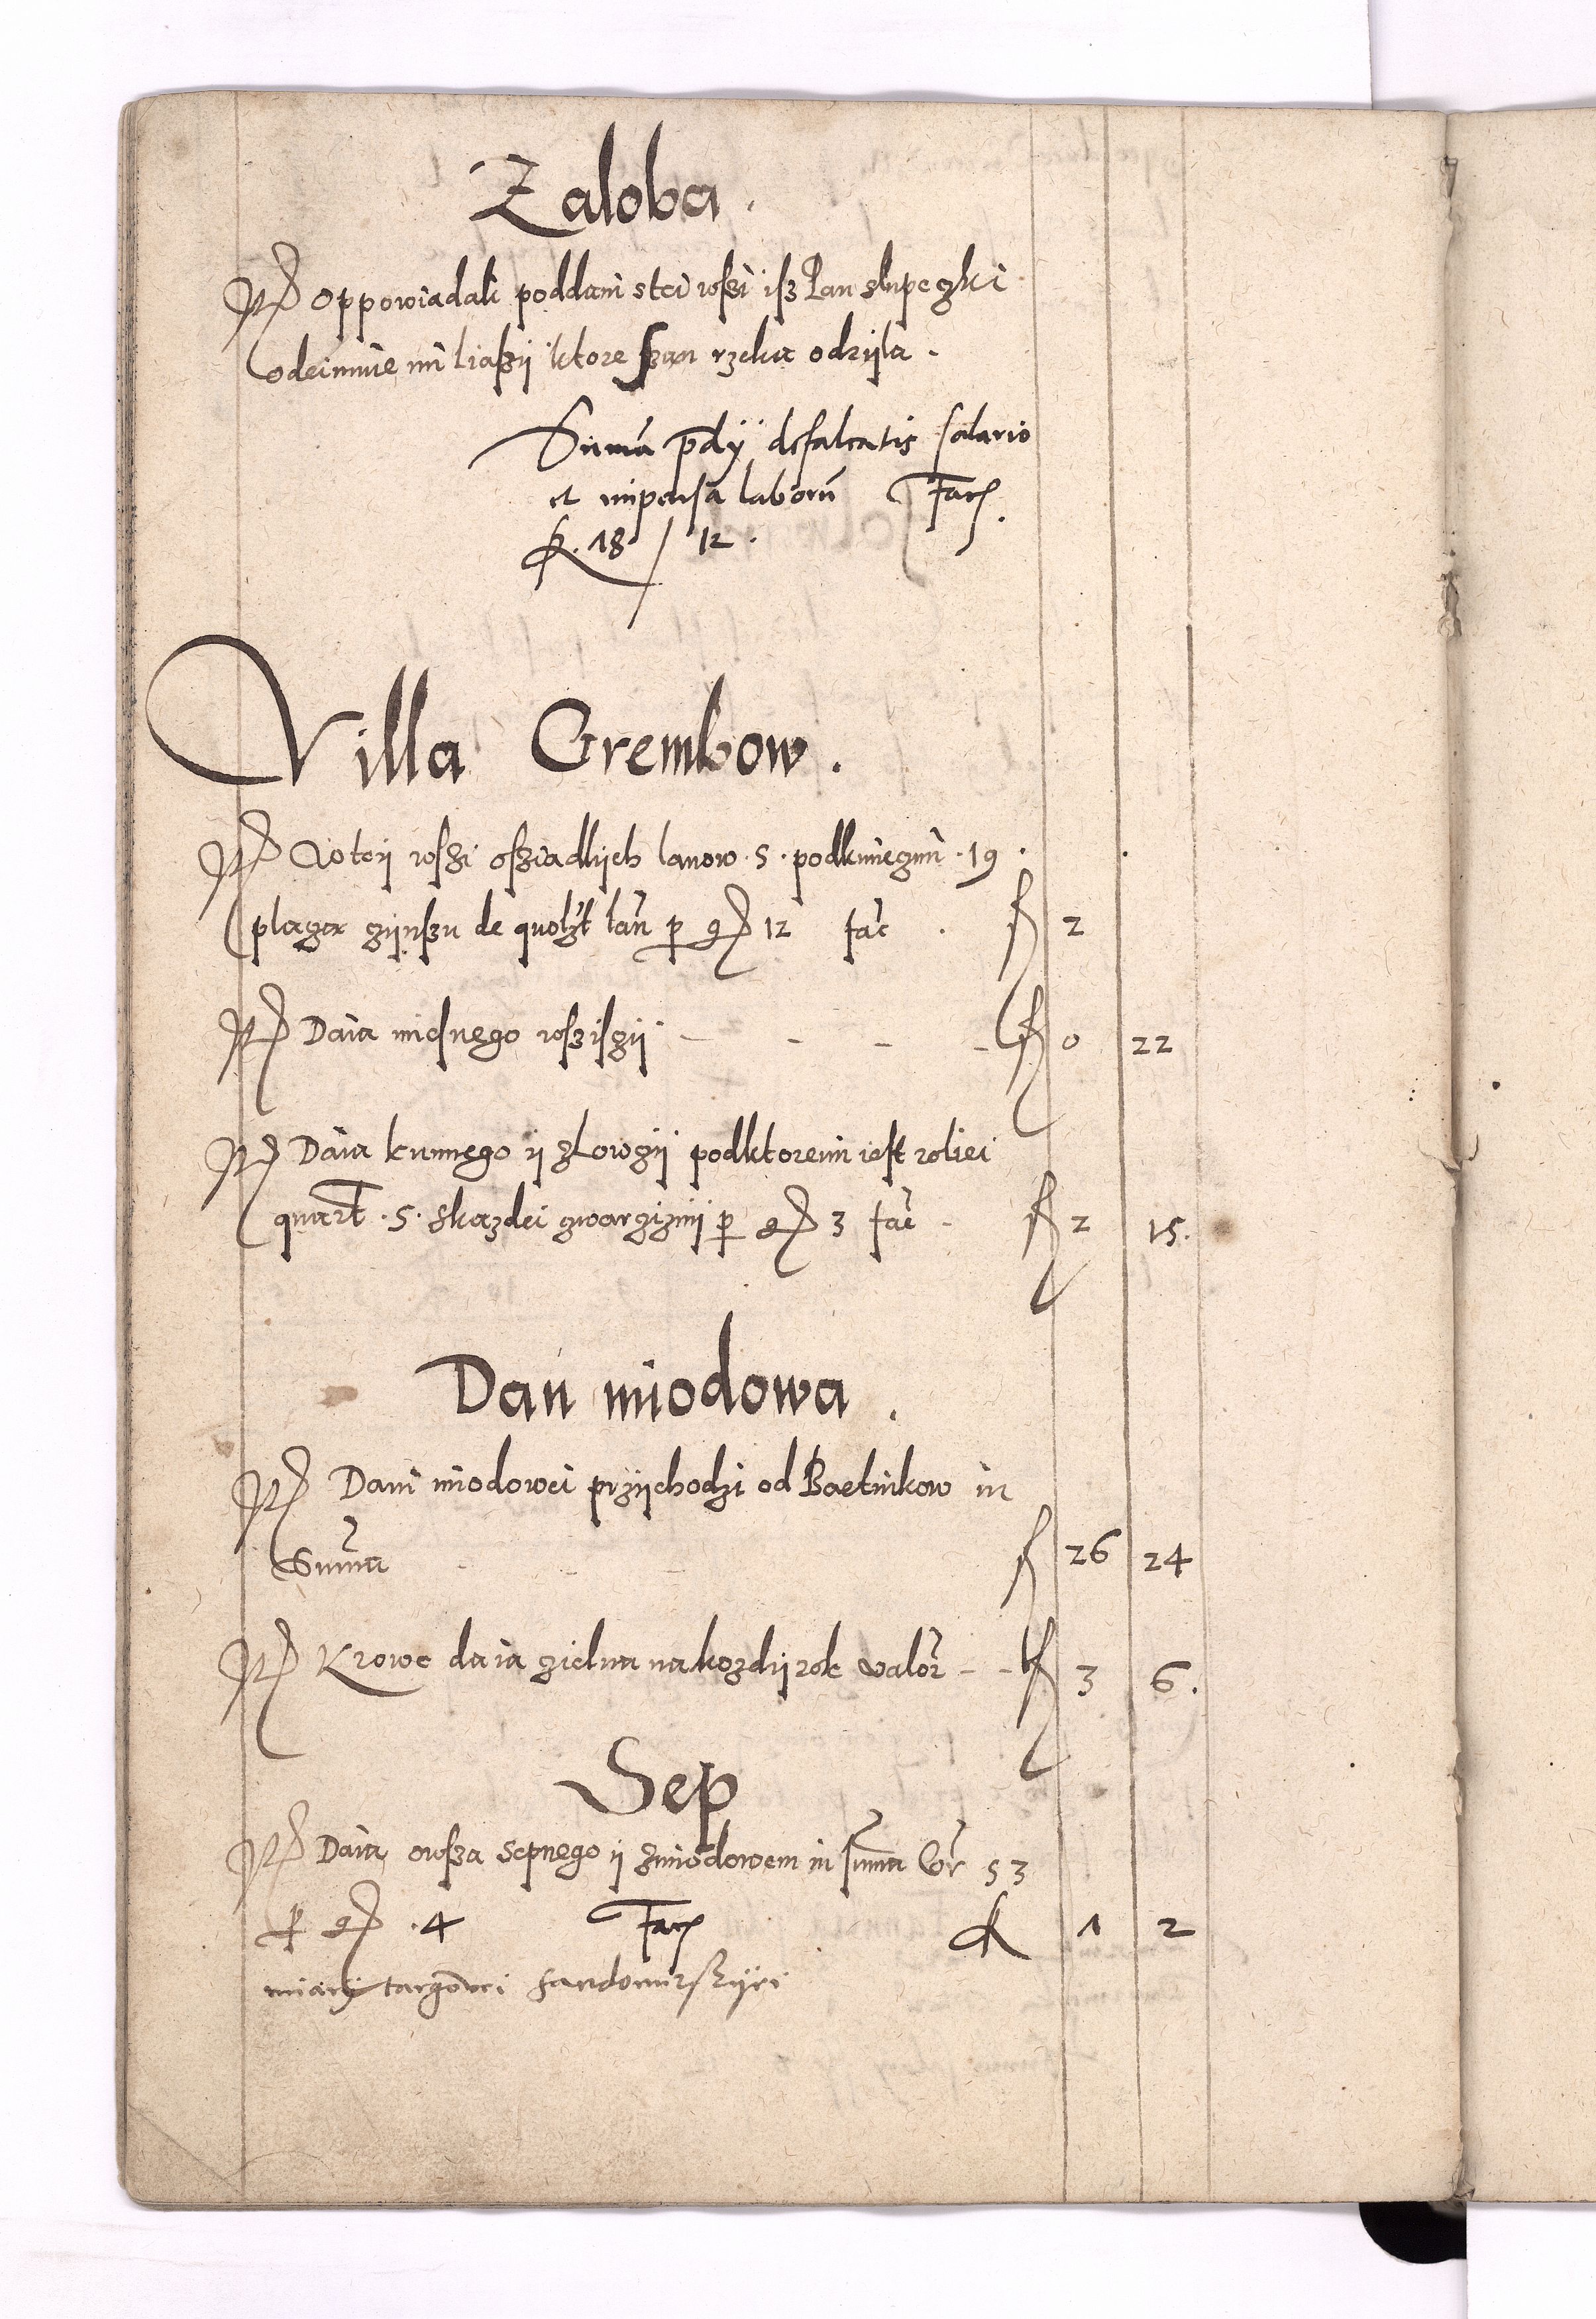 Zaloba.
It oppowiadali poddani stei wsszi isz Pan slupeczki
odeimuie im liassy ktore Szan rzeka odryla.
Suma pdy defalcatis salario
et impensa laborum Facit
f. 18 / 12.
Villa Grembow.
It w tey wsszi osziadlych lanow. 5. podkmieczmi. 19.
placza czynszu de quolzt lan p gr 12 fac. f 2
It Daia miesnego wszisczy - - - - f 0 22
It Daia kunnego y glowczy podktoremi iest roliei
quart. 5. skazdei czwarczizny p gr 3 fac - f 2 15.
Dan miodowa.
It Dani miodowei przychodzi od Baetnikow in
Summa f 26 24
It Krowe daia zielna nakozdy rok valor - - f 3 6.
Sep
It Daia owsza sepnego y zmiodowem in summa Cor 53
p gr. 4 Facit f 1 2
miary targowei sandomirskyei